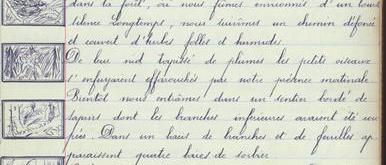 dans la forêt, où nous fûmes environnés d'un lourd
silence. Longtemps, nous suivîmes un chemin défoncé
et couvert d'herbes folles et humides.
De leur nid tapissé de plumes les petits oiseaux
s'enfuyaient effarouchés par notre présence matinale.
Bientôt nous entrâmes dans un sentier bordé de
sapins dont les branches inférieures avaient été cou
pées. Dans un fouis de branches et de feuilles ap
paraissent quatre baies de sorbier.